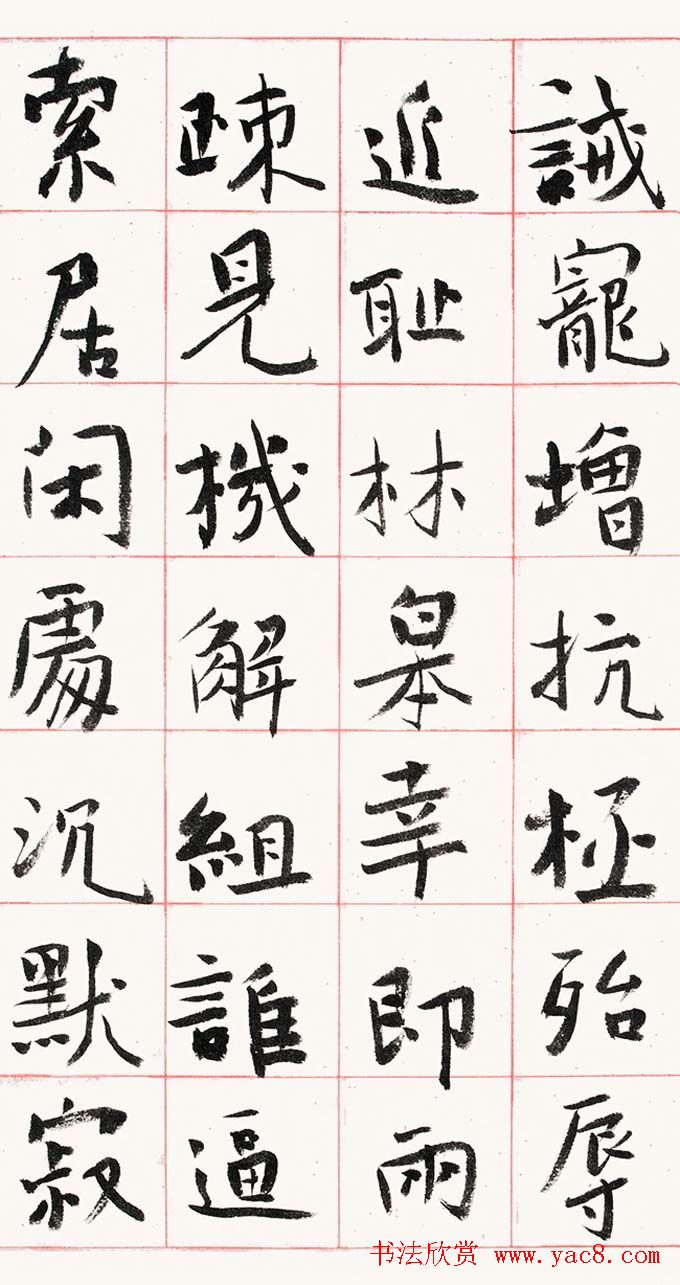 誡寵增抗極殆辱
近耻林皋幸即兩
疎見機解組誰逼
索居闲處沉默寂
书法欣赏 www.yac8.com